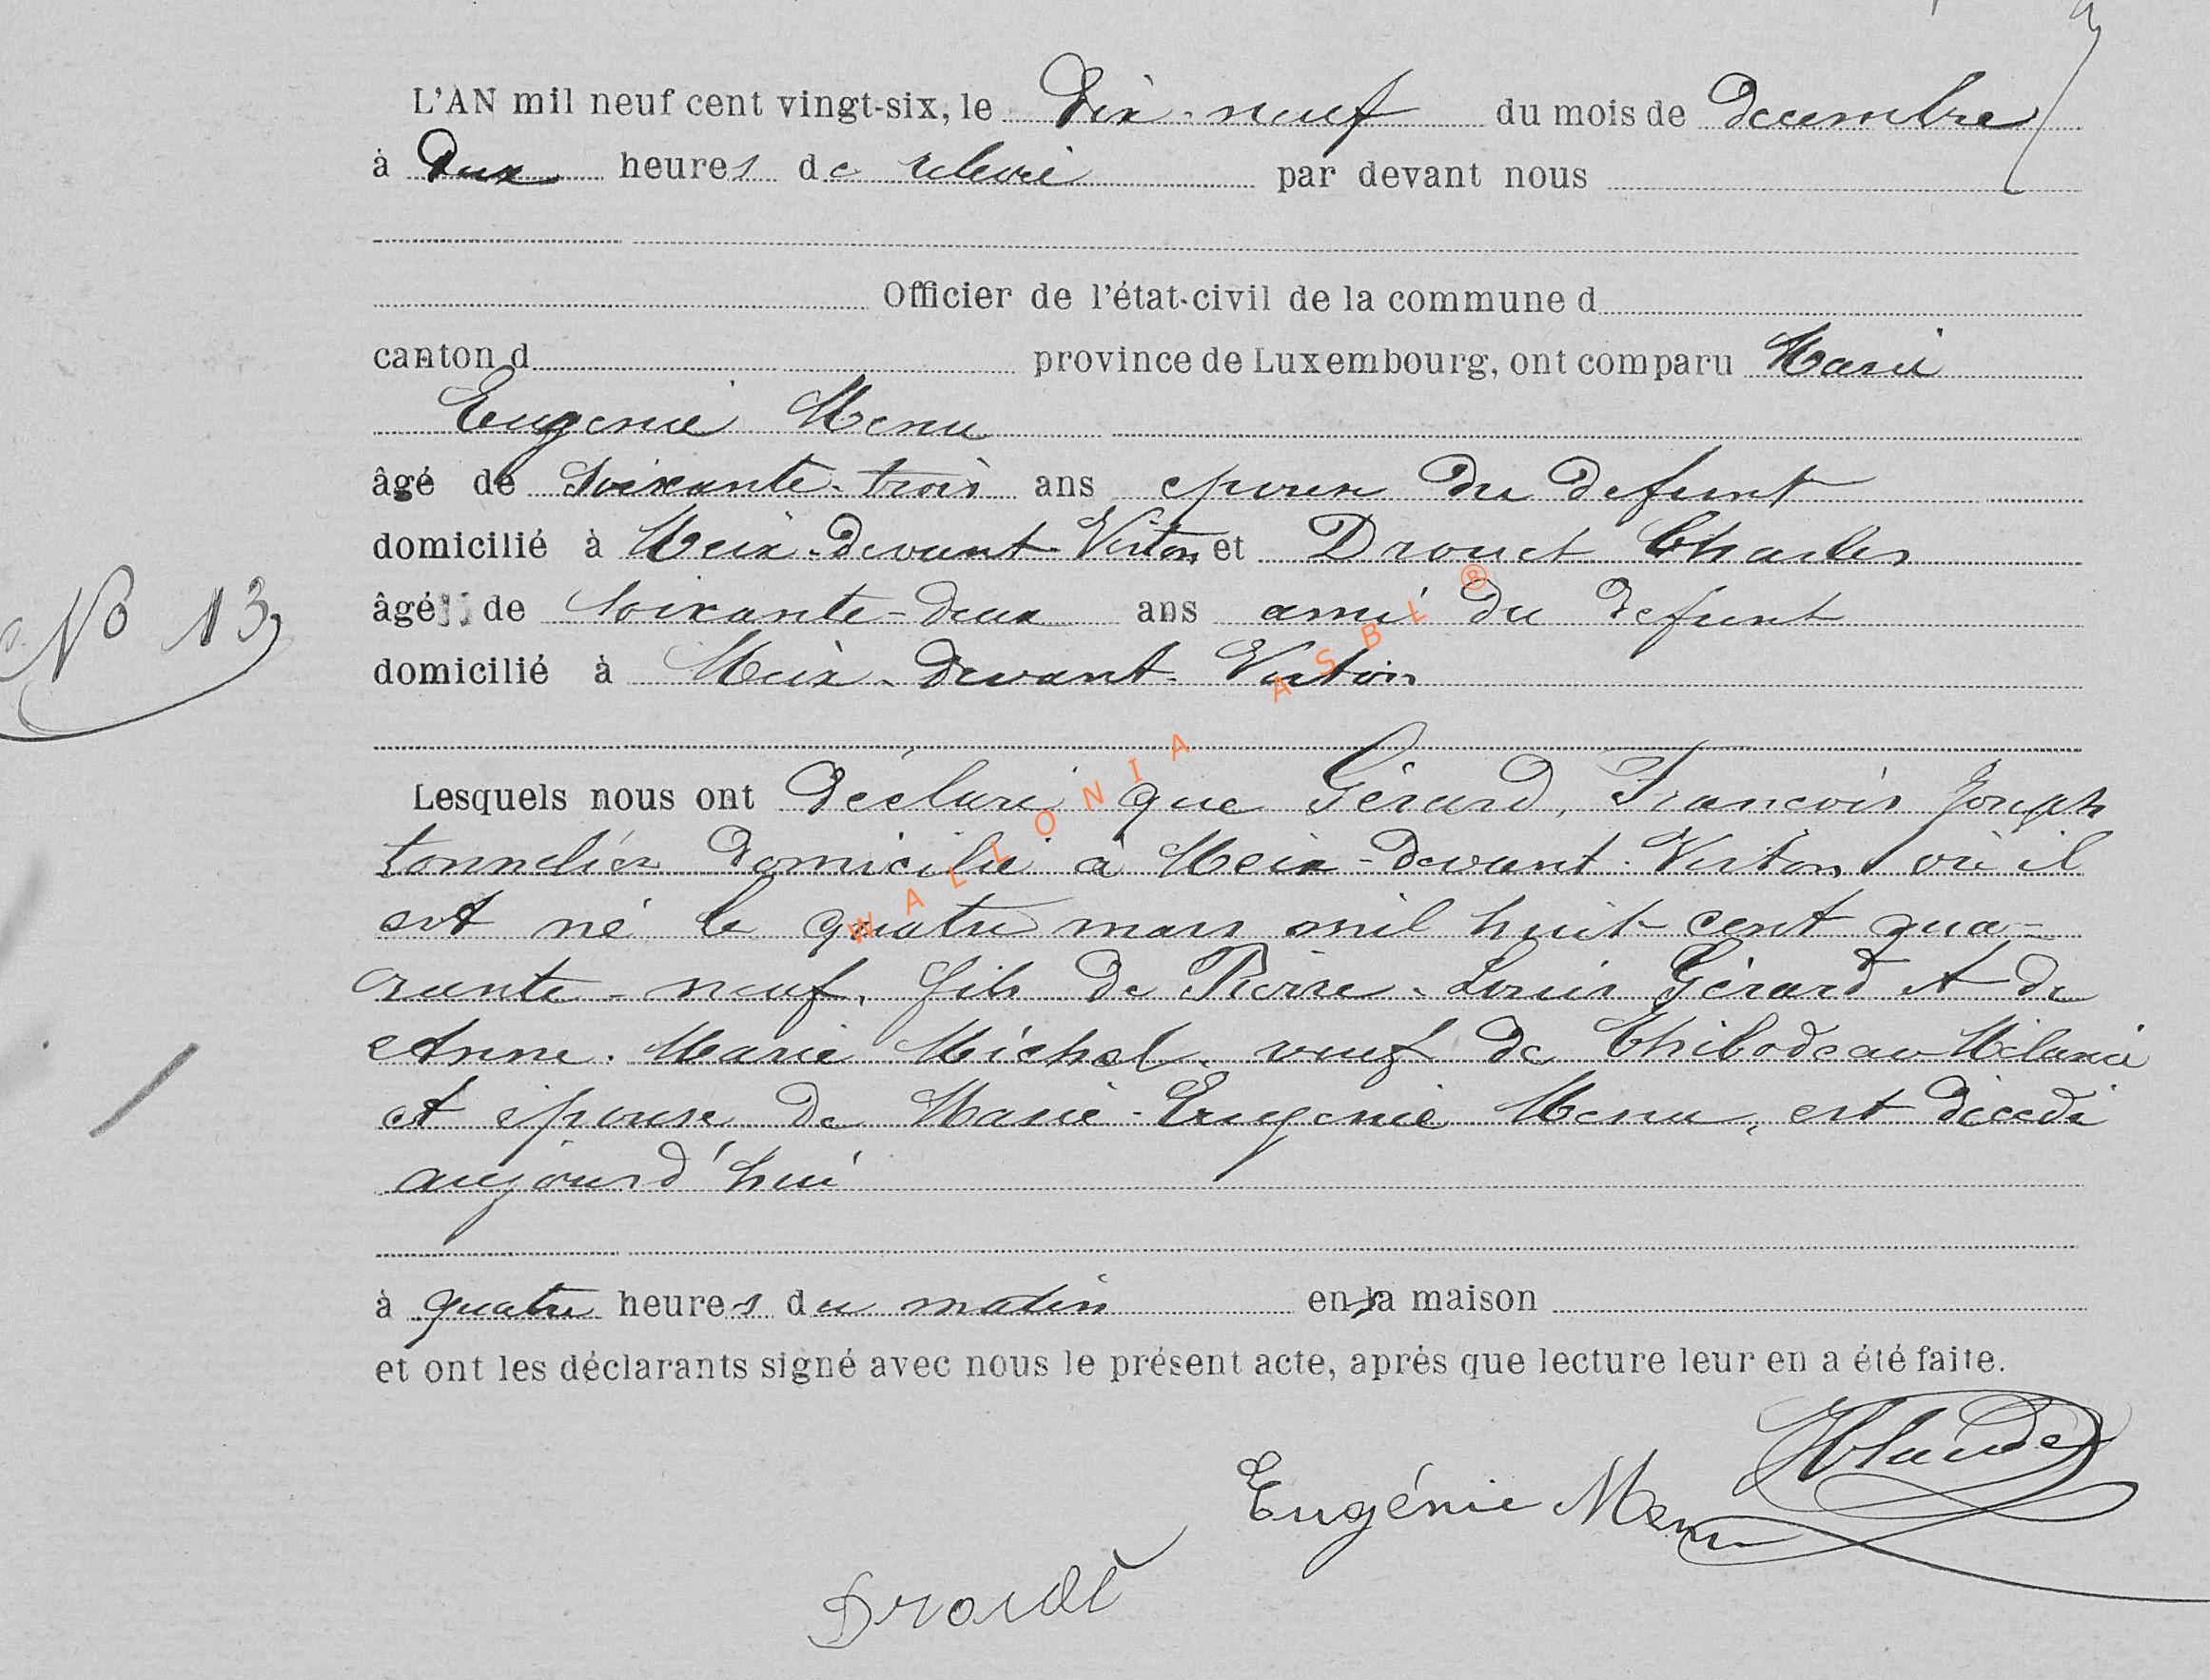 L'AN mil neuf cent vingt-six, le Dix-neuf du mois de Decembre
à Deux heures de relevée par devant nous
Officier de l'état-civil de la commune d
canton d province de Luxembourg, ont comparu Marie
Eugenie Menu
âgé de soixante-trois ans epouse du defunt
domicilié à Meix-devant-Virton et Drouet Charles
No 13
âgé de soixante-deux ans ami du defunt
domicilié à Meix-devant-Virton
Lesquels nous ont déclaré que Gérard, François Joseph
tonnelier domicilié à Meix-devant-Virton où il
est né le quatre mars mil huit cent qua-
rante-neuf, fils de Pierre-Louis Gérard et de
Anne-Marie Michel, veuf de Thibodeau Mélanie
et épouse de Marie-Eugenie Menu, est décédé
aujourd'hui
à quatre heures du matin en sa maison
et ont les déclarants signé avec nous le présent acte, après que lecture leur en a été faite.
Eugénie Menu
Drouet
WALLONIA ASBL ®